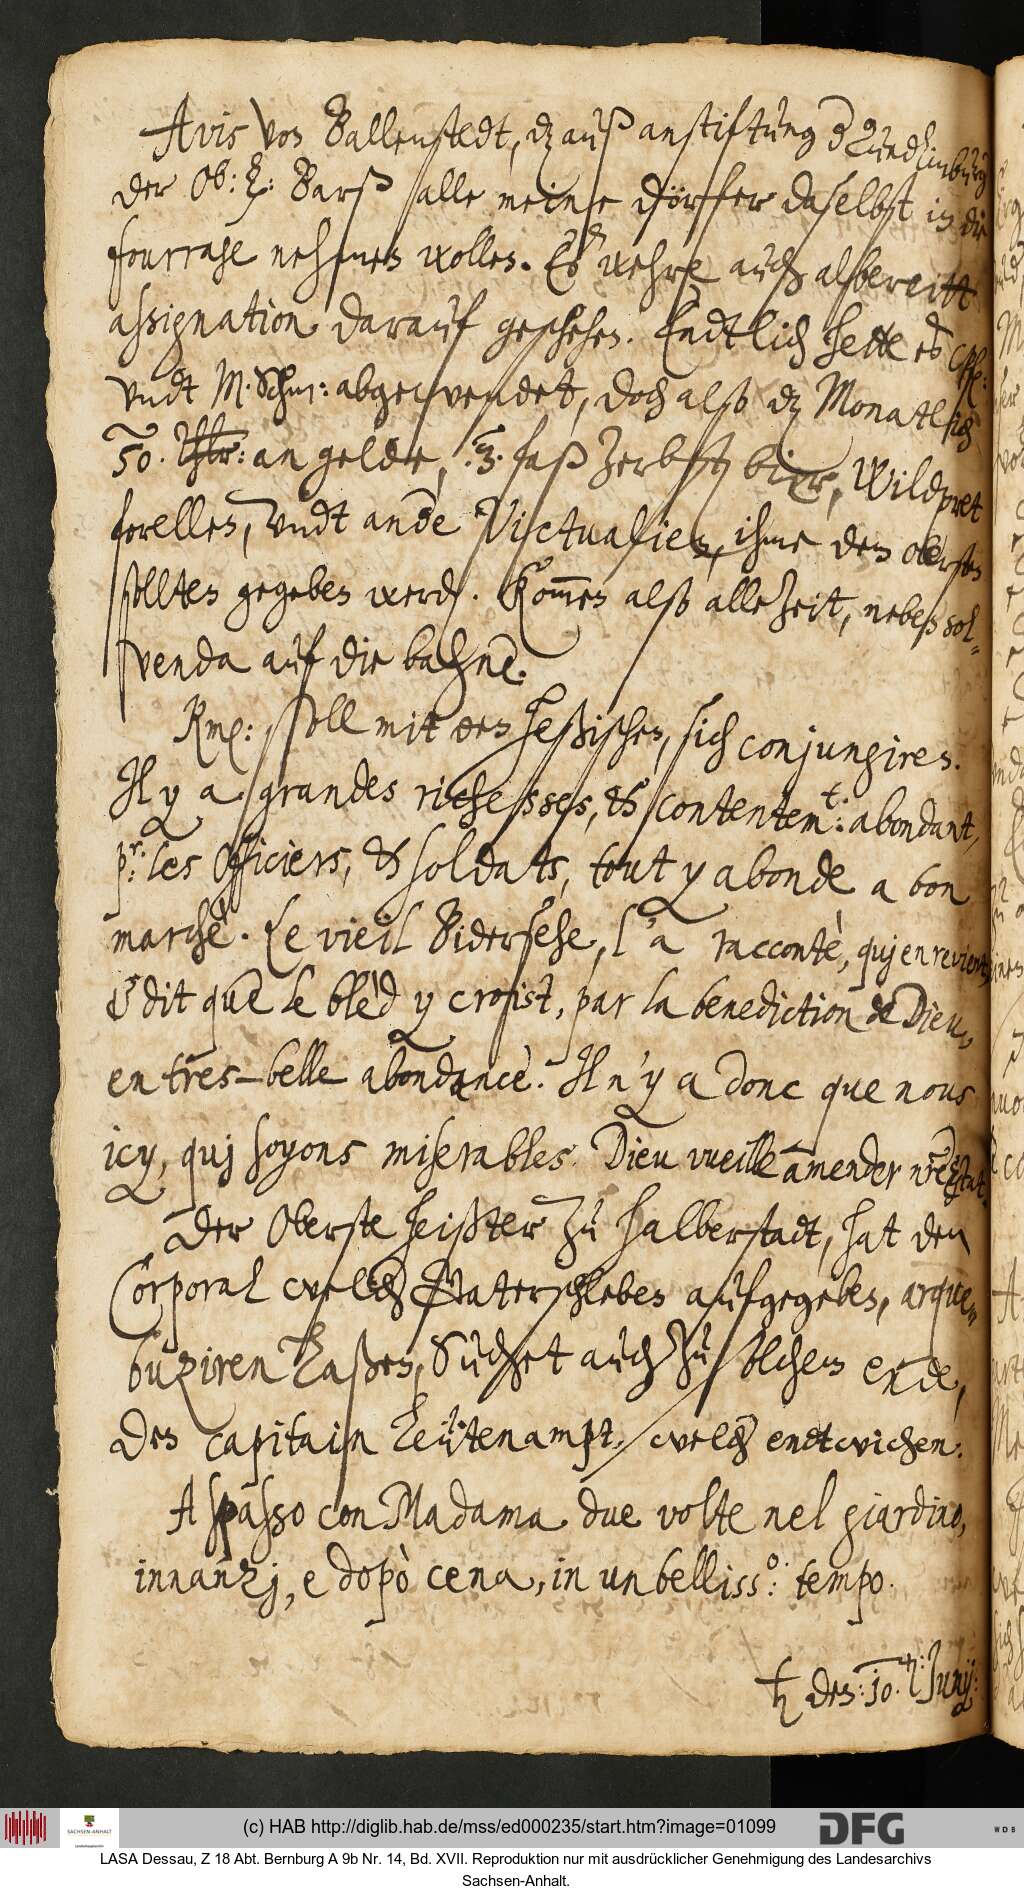 Avis von Ballenstedt, dz auß anstiftung d Quedlinburg
der Ob: L: Barß alle meine dörffer daselbst in die
fourrage nehmen wollen. Es wehre auch albereitt
assignation darauf geschehen. Endtlich hette es
vndt M. Schm: abgewendet, doch alß dz Monatlich
50. Thlr: an gelde, .3. faß Zerbster bier, Wildpret
forellen, vndt ande Victualien, ihme dem obersten
sollten gegeben werden. Kommen alß alle Zeit, neben sol-
venda auf die bahne.
Kml: soll mit den heßischen, sich conjungiren.
Il y a grandes richesses, & contentem.t: abondant,
p.r: les Officiers, & soldats, tout y abonde a bon
marchè. Le vieil Bidersehe, l'a racconté, quj en revient,
& dit que le blèd y croist, par la benediction de Dieu,
en tres-belle abondance. Il n'y a donc que nous
icy, quj soyons miserables. Dieu vueille amender nre estat.
Der Oberste heißter zu halberstadt, hat den
Corporal welch Staterschleben aufgegeben, arque-
buziren laßen, Suchet auch zu solchem ende,
den capitain Leütenampt, welch endtwichen.
A spasso con Madama due volte nel giardino,
innanzj, e dopò cena, in un belliss.o: tempo.
♄ den: 10. t: Junij:
(c) HAB http://diglib.hab.de/mss/ed000235/start.htm?image=01099
SACHSEN-ANHALT
DFG
WDB
LASA Dessau, Z 18 Abt. Bernburg A 9b Nr. 14, Bd. XVII. Reproduktion nur mit ausdrücklicher Genehmigung des Landesarchivs
Sachsen-Anhalt.